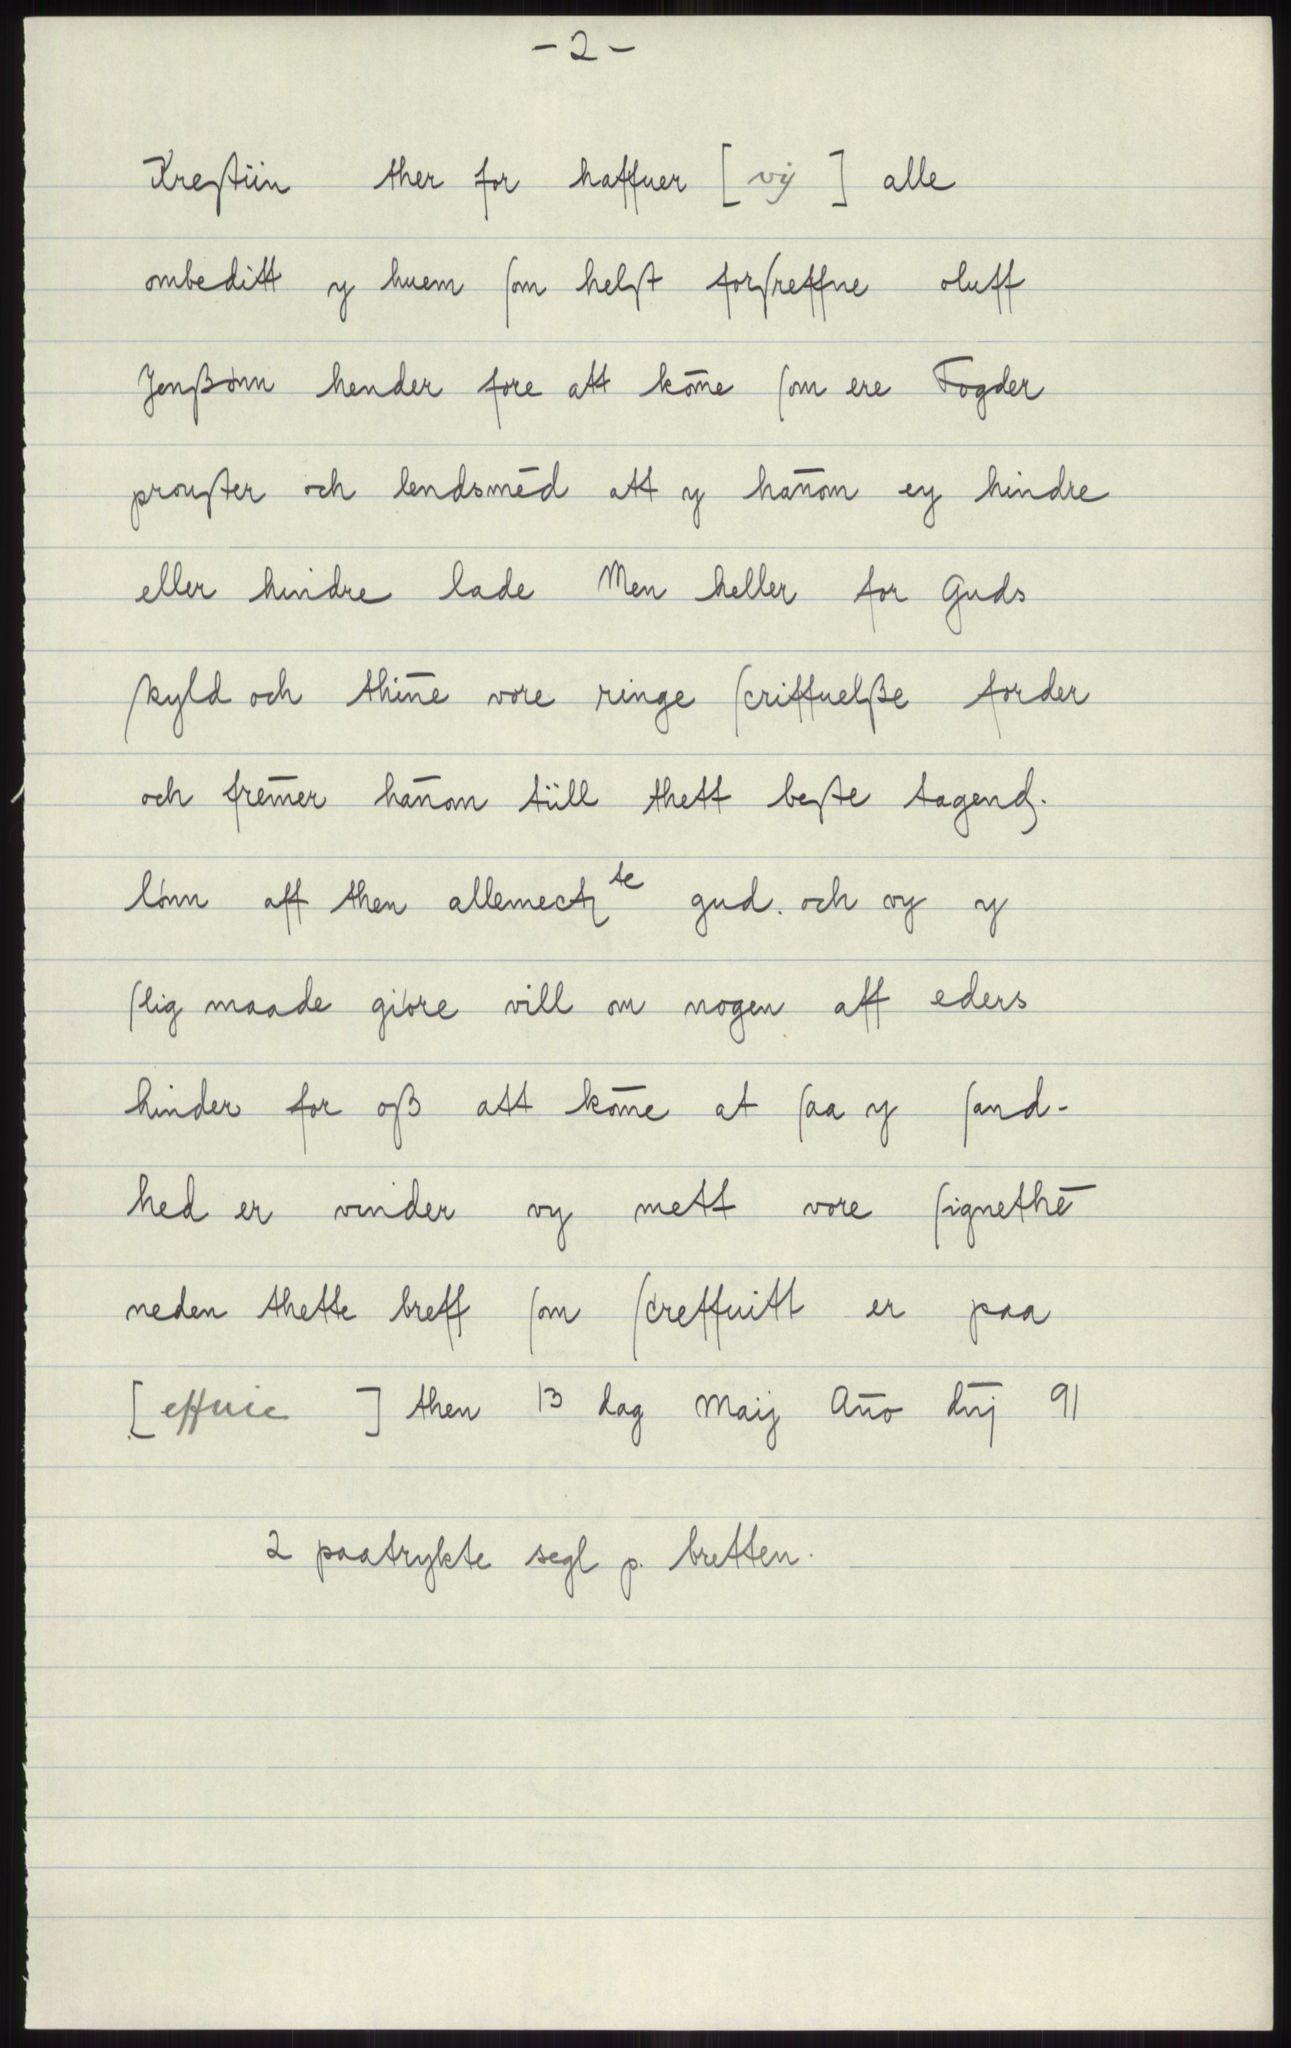 - 2 -
Kreſtiin ther for haffuer [ vij ] alle
ombeditt y huem ſom helſt forſreffne oluff
Jenßønn hender fore att kom̄e ſom ere Fogder
prouſter och lendsmēd att y han̄om ey hindre
eller hindre lade Men heller for Guds
ſkyld och thin̄e vore ringe ſcriffuelße forder
och frem̄er han̄om tiill thett beſte tagendſ.
lønn aff then allemectſ te gud. och vy y
ſlig maade giøre vill om nogen aff eders
hinder for oß att kom̄e at ſaa y ſand-
hed er vinder vy mett vore ſignethē
neden thette breff ſom ſcreffuitt er paa
[ effuie ] then 13 dag Maij An̄o dn̄j 91
2 paatrykte segl p. bretten.